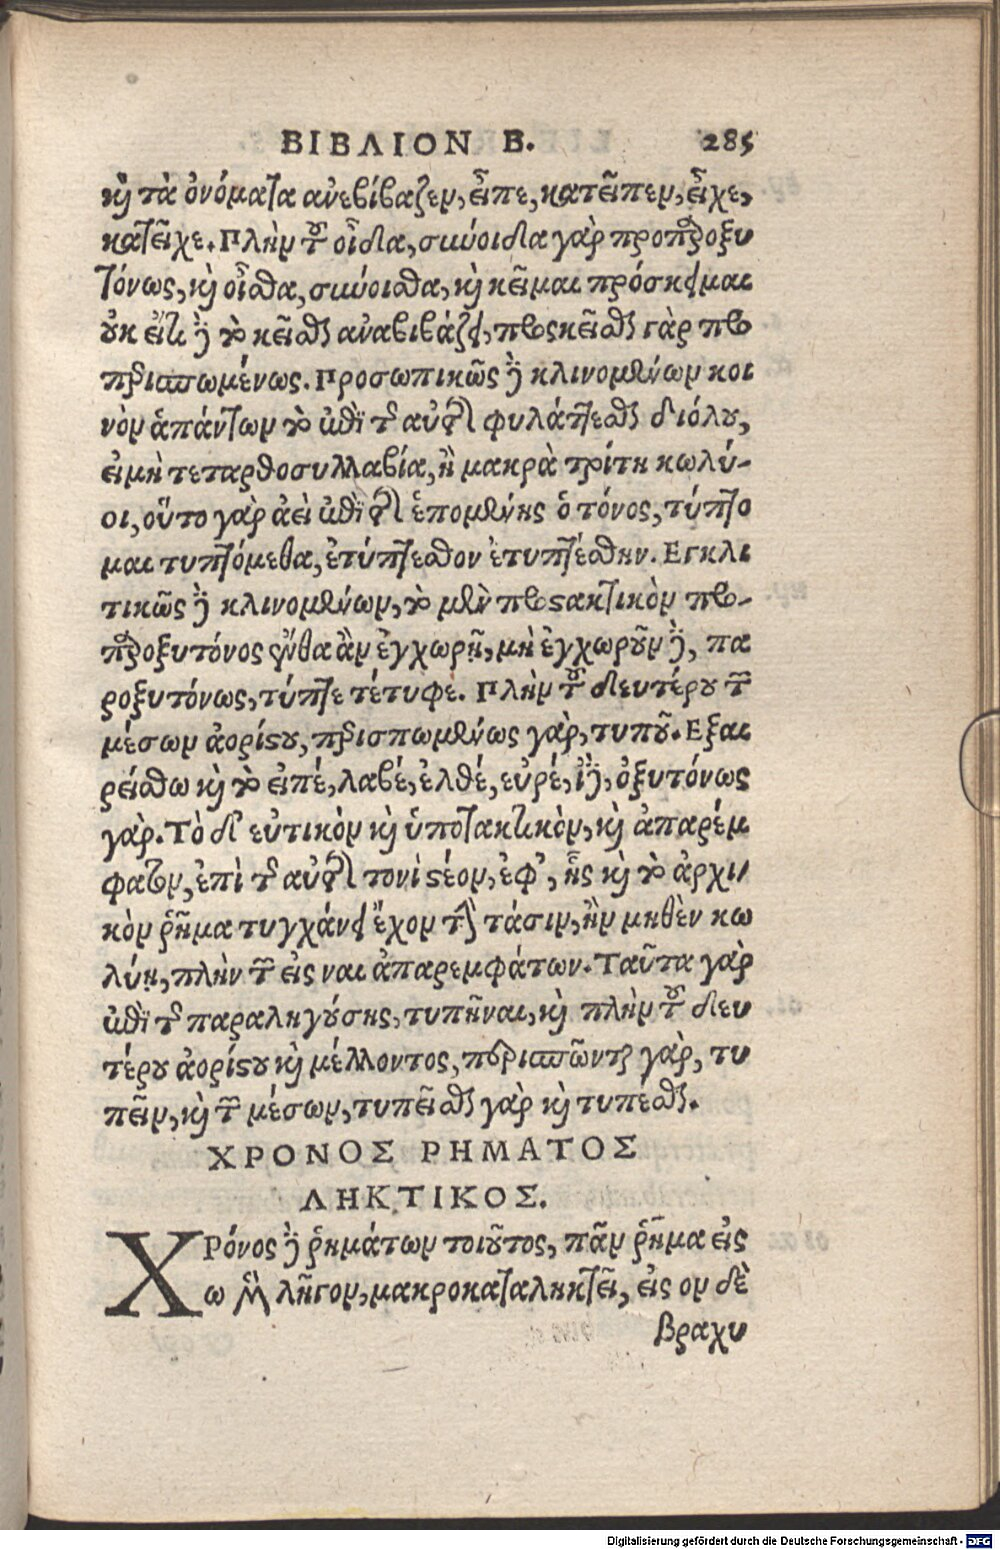 ΒΙΒΛΙΟΝ Β. 285
καὶ τὰ ὀνόματα ἀνεβίβαζεν, εἶπε, κατεῖπεν, εἶχε,
κατεῖχε. Πλὴν τοῦ οἶδα, σύνοιδα γὰρ προπαροξυ
τόνως, καὶ οἶσθα, σύνοισθα, καὶ κεῖμαι πρόσκειμαι
οὐκ ἔτι δὲ τὸ κεῖσθαι ἀναβιβάζει, προσκεῖσθαι γὰρ προ
περισπωμένως. Προσωπικῶς δὲ κλινομένων κοι
νὸν ἁπάντων τὸ ἐπὶ τῆς αὐτῆς φυλάττεσθαι διόλου,
εἰ μὴ τεταρτοσυλλαβία, ἢ μακρὰ τρίτη κωλύ-
οι, οὕτο γὰρ ἀεὶ ἐπὶ τῆς ἑπομένης ὁ τόνος, τύπτο
μαι τυπτόμεθα, ἐτύπτεσθον ἐτυπτέσθην. Εγκλι
τικῶς δὲ κλινομένων, τὸ μὲν προστακτικὸν προ-
παροξυτόνος ἔνθα ἂν ἐγχωρῇ, μὴ ἐγχωροῦν δὲ, πα
ροξυτόνως, τύπτε τέτυφε. Πλὴν τοῦ δευτέρου τῶν
μέσων ἀορίστου, περισπωμένως γὰρ, τυποῦ. Εξαι
ρείσθω καὶ τὸ εἰπέ, λαβέ, ἐλθέ, εὑρέ, ἰδέ, ὀξυτόνως
γάρ. Τὸ δ' εὐτικὸν καὶ ὑποτακτικὸν, καὶ ἀπαρέμ
φατον, ἐπὶ τῆς αὐτῆς τονιστέον, ἐφ', ἧς καὶ τὸ ἀρχι
κὸν ῥῆμα τυγχάνει ἔχον τὴν τάσιν, ἢν μηθὲν κω
λύῃ, πλὴν τῶν εἰς ναι ἀπαρεμφάτων. Ταῦτα γὰρ
ἐπὶ τῆς παραληγούσης, τυπῆναι, καὶ πλὴν τοῦ δευ
τέρου ἀορίστου καὶ μέλλοντος, περισπῶνται γὰρ, τυ
πεῖν, καὶ τῶν μέσων, τυπεῖσθαι γὰρ καὶ τυπέσθαι.
ΧΡΟΝΟΣ ΡΗΜΑΤΟΣ
ΛΗΚΤΙΚΟΣ.
Χρόνος δὲ ῥημάτων τοιοῦτος, πᾶν ῥῆμα εἰς
ω μὲν λῆγον, μακροκαταληκτεῖ, εἰς ον δὲ
βραχυ
Digitalisierung gefördert durch die Deutsche Forschungsgemeinschaft - DFG